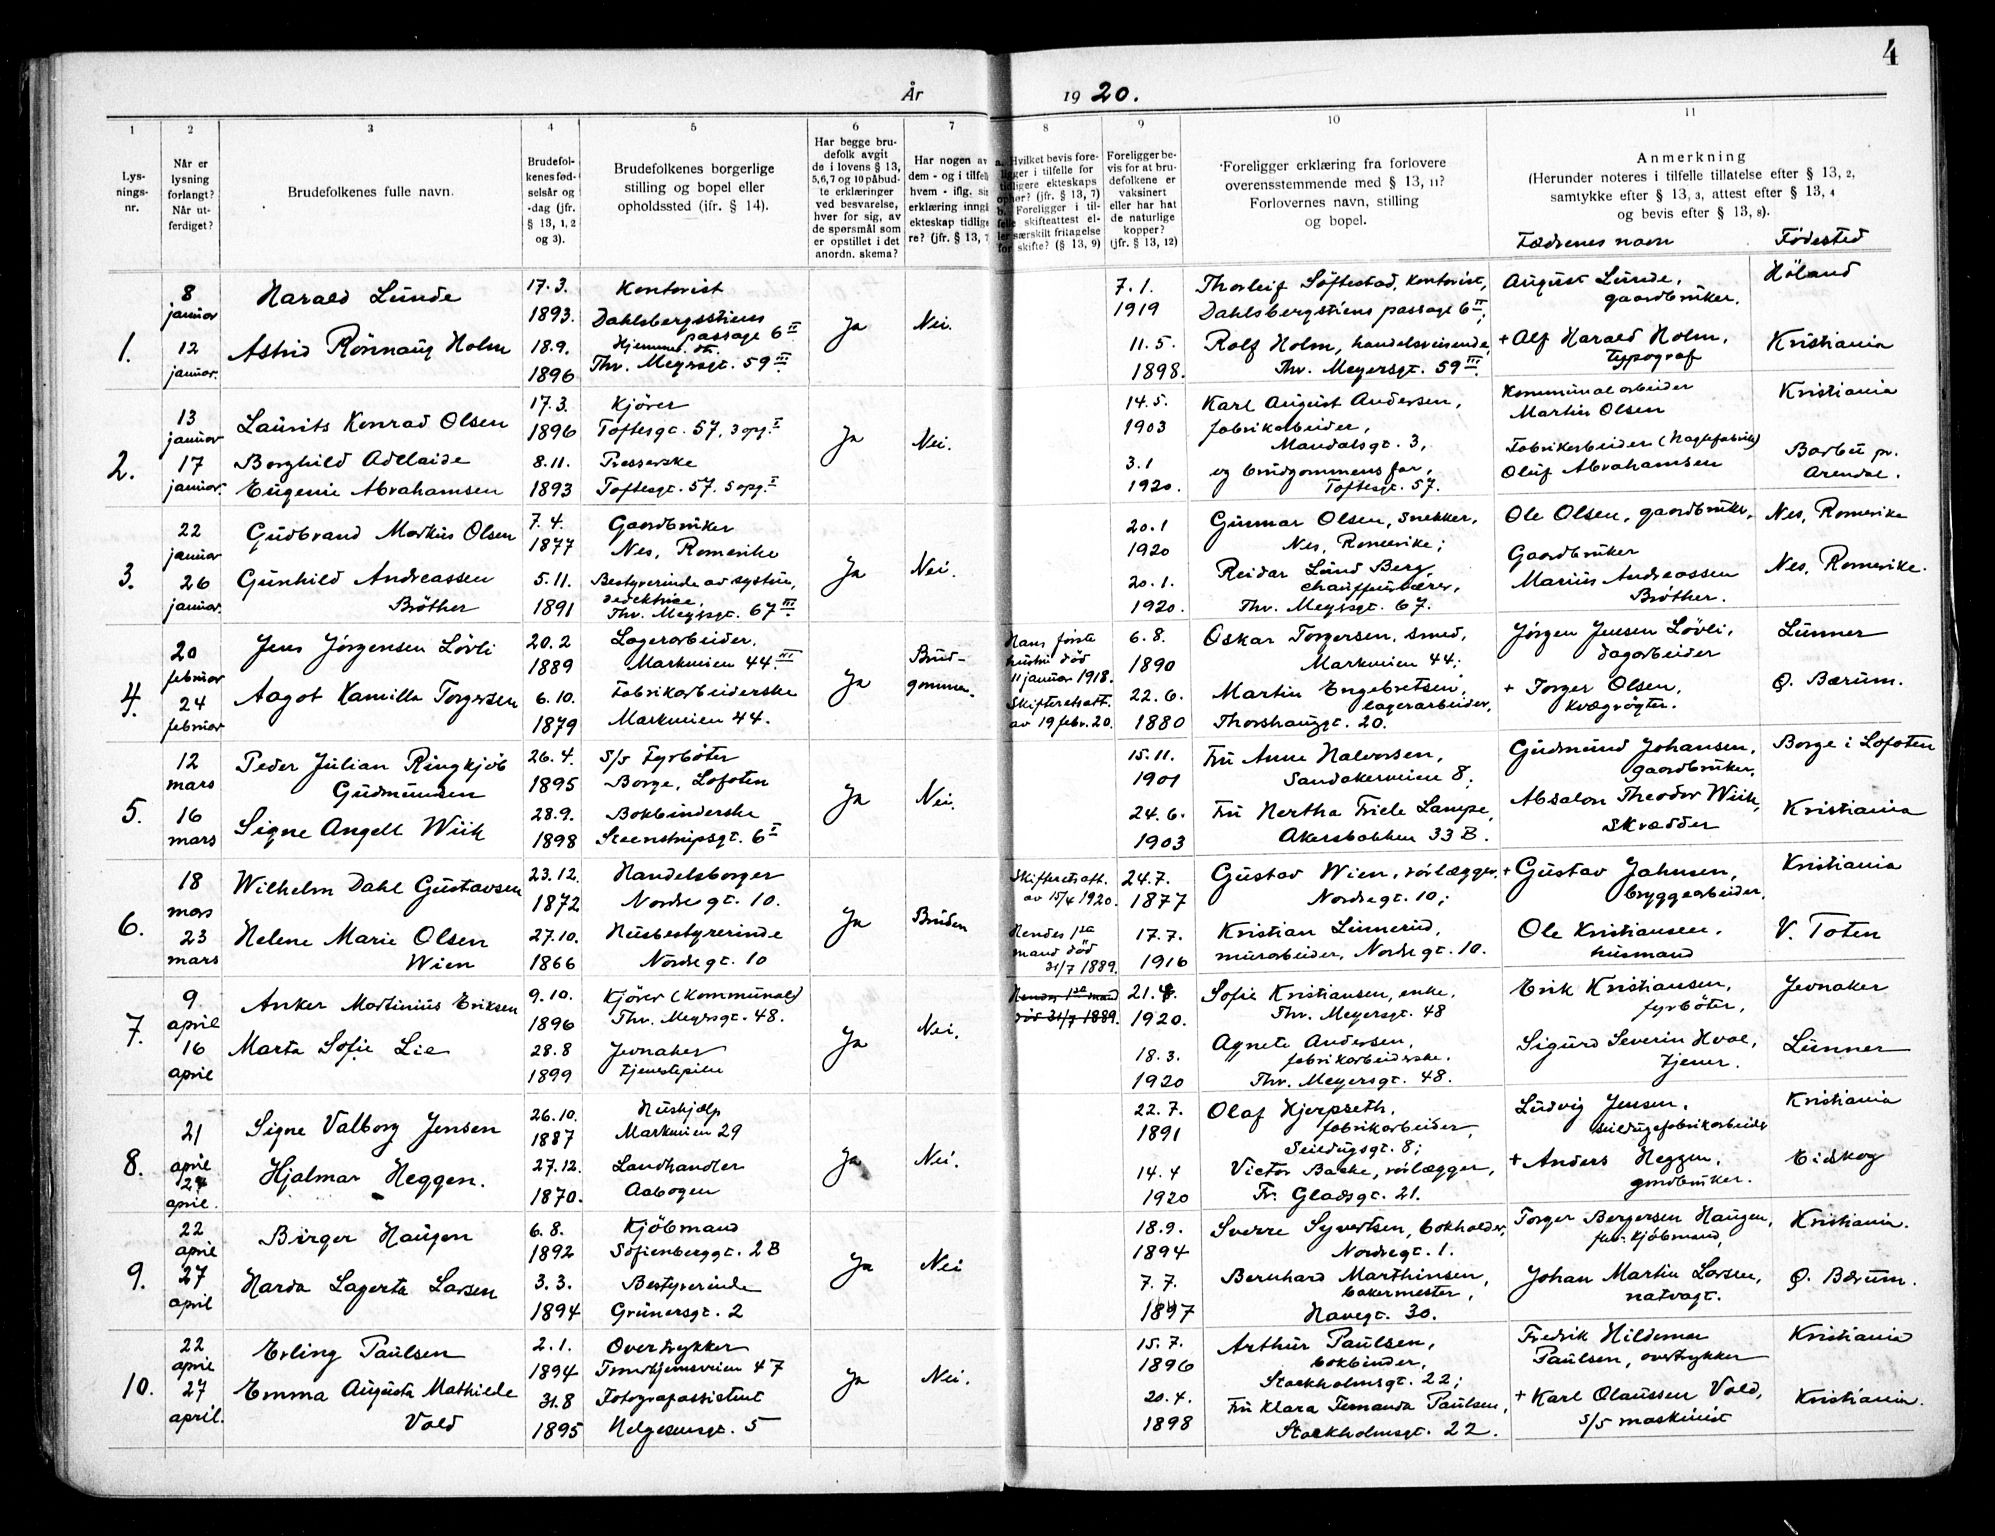 4
År 1920.
1 2 3 4 5 6 7 8 9 10 11
Lys-
nings-
nr.
Når er
lysning
forlangt?
Når ut-
ferdiget?
Brudefolkenes fulle navn.
Brudefol-
kenes fød-
selsår og
-dag (jfr.
§ 13, 1, 2
og 3).
Brudefolkenes borgerlige
stilling og bopel eller
opholdssted (jfr. § 14).
Har begge bru-
defolk avgit
de i lovens § 13,
5,6,7 og 10 påbud-
te erklæringer
ved besvarelse,
hver for sig, av
de spørsmål som
er opstillet i det
anordn. skema?
Har nogen av
dem - og i tilfelle
hvem - iflg. sin
erklæring inngått
ekteskap tidlige-
re? (jfr. § 13, 7
a. Hvilket bevis fore-
ligger i tilfelle for
tidligere ekteskaps
ophør? (jfr. § 13, 7)
b. Foreligger i til-
felle skifteattest el-
ler særskilt fritagelse
for skifte? (§ 13, 9)
Foreligger be-
vis for at bru-
defolkene er
vaksinert
eller har hat
de naturlige
kopper?
(jfr. § 13, 12)
Foreligger erklæring fra forlovere
overensstemmende med § 13, 11?
Forlovernes navn, stilling
og bopel.
Anmerkning
(Herunder noteres i tilfelle tillatelse efter § 13, 2,
samtykke efter § 13, 3, attest efter § 13, 4
og bevis efter § 13, 8).
Fædrenes navn Fødested
1.
8
januar
12
januar.
Harald Lunde
Astrid Rönnaug Holm
17.3.
1893.
18.9.
1896
Kontorist
Dahlsbergsstiens
passage 6 II
Hjemmev. dtr.
Thv. Meyersgt. 59 III
Ja
Nei.
7.1.
1919
11.5.
1898.
Thorleif Söftestad, kontorist,
Dahlsbergstiens passage 6 II;
Rolf Holm, handelsreisende,
Thv. Meyersgt. 59 III.
August Lunde,
gaardbruker.
+ Alf Harald Holm,
typograf
Höland
Kristiania
2.
13
januar
17
januar.
Laurits Konrad Olsen
Borghild Adelaide
Eugenie Abrahamsen
17.3.
1896
8.11.
1893
Kjörer
Toftesgt. 57, 3 opg. I
Presserske
Toftesgt. 57. 5 opg. I
Ja
Nei.
14.5.
1903
3.1
1920.
Karl August Andersen,
fabrikarbeider,
Mandalsgt. 3,
og brudgommens far,
Toftesgt. 57.
Kommunalarbeider
Martin Olsen
Fabrikarbeider (Naglefabrik)
Oluf Abrahamsen
Kristiania
Barbu pr.
Arendal.
3.
22
januar
26
januar.
Gudbrand Markus Olsen
Gunhild Andreassen
Bröther
7.4.
1877
5.11.
1891
Gaardbruker
Nes, Romerike
Bestyrerinde av systue,
Thv. Meyersgt. 67 III
Ja
Nei.
20.1
1920
20.1.
1920.
Gunnar Olsen, snekker,
Nes, Romerike;
Reidar Lund Berg,
chauffeurlærer,
Thv. Meyersgt. 67.
Ole Olsen, gaardbruker,
Gaardbruker
Marius Andreassen
Bröther.
Nes, Romerike
Nes, Romerike.
4.
20
februar
24
februar
Jens Jörgensen Lövli
Aagot Kamilla Torgersen
20.2
1889
6.10.
1879
Lagerarbeider.
Markveien 44. III
Fabrikarbeiderske
Markveien 44.
Ja
Brud-
gommen.
Hans første
hustru död
11 januar 1918.
Skifteretsatt.
av 19 febr. 20.
6.8.
1890
22.6.
1880
Oskar Torgersen, smed,
Markveien 44;
Martin Engebretsen,
lagerarbeider,
Thorshauggt. 20.
Jörgen Jensen Lövli,
dagarbeider
+ Torger Olsen,
kvægrögter.
Lunner
Ø. Bærum.
5.
12
mars
16
mars
Peder Julian Ringkjöb
Gudmundsen
Signe Angell Wiik
26.4.
1895
28.9.
1898
S/S Fyrböter
Borge, Lofoten
Bokbinderske
Steenstrupsgt. 6 I
Ja
Nei.
15.11.
1901
24.6.
1903
Fru Anne Halvorsen,
Sandakerveien 8;
Fru Hertha Friele Lampe,
Akersbakken 33 B.
Gudmund Johansen,
gaardbruker,
Absalon Theodor Wiik,
Skrædder
Borge i Lofoten
Kristiania
6.
18
mars
23
mars
Wilhelm Dahl Gustavsen
Helene Marie Olsen
Wien
23.12.
1872
27.10.
1866
Handelsborger
Nordregt. 10.
Husbestyrerinde
Nordregt. 10
Ja
Bruden
Skifteretsatt.
av 15/4 1920.
Hendes 1ste
mand död
31/7 1889.
24.7.
1877
17.7.
1916
Gustav Wien, rörlægger.
Nordregt. 10;
Kristian Linnerud,
murarbeider, Nordregt. 10.
+ Gustav Jahnsen,
bryggearbeider.
Ole Kristiansen,
husmand
Kristiania
V. Toten
7.
9
april
16
april
Anker Martinius Eriksen
Marta Sofie Lie
9.10.
1896
28.8
1899
Kjörer (kommunal)
Thv. Meyersgt. 48.
Jevnaker
tjenestepike
Ja
Nei.
Hendes 1ste mand
död 31/7 1889.
21.4.
1920.
18.3.
1920
Sofie Kristiansen, enke,
Thv. Meyersgt. 48
Agnete Andersen,
fabrikarbeiderske.
Thv. Meyersgt. 48.
Erik Kristiansen,
fyrböter,
Sigurd Severin Hval,
tjener.
Jevnaker
Lunner
8.
21
april
24
april.
Signe Valborg Jensen
Hjalmar Heggen.
26.10.
1887
27.12.
1870.
Hushjælp
Markveien 29
Landhandler
Aabogen
Ja
Nei.
22.7.
1891
14.4
1920
Olaf Hjerpseth,
fabrikarbeider,
Seildugsgt. 8;
Victor Backe, rörlægger,
Fr. Gladsgt. 21.
Ludvig Jensen,
seildugsfabrikarbeider
+ Anders Heggen,
gaardbruker.
Kristiania
Eidskog
9.
22
april
27
april
Birger Haugen
Harda Lagerta Larsen
6.8.
1892
3.3.
1894
Kjöbmand
Sofienberggt. 2 B
Bestyrerinde
Grünersgt. 2
Ja
Nei
18.9.
1894
7.7.
1897
Sverre Syvertsen, bokholder,
Nordregt. 1.
Bernhard Marthinsen,
bakermester,
Havegt. 30.
Torger Bergersen Haugen,
fhv. kjöbmand,
Johan Martin Larsen,
natvagt.
Kristiania.
Ø. Bærum.
10.
22
april
27
april.
Erling Paulsen
Emma Augusta Mathilde
Vold
2.1.
1894
31.8
1895
Overtrykker
Trondhjemsveien 47
Fotografassistent
Helgesensgt. 5
Ja
Nei.
15.7.
1896
20.4.
1898
Arthur Paulsen,
bokbinder,
Stockholmsgt. 22;
Fru Klara Fernanda Paulsen,
Stockholmsgt. 22.
Fredrik Hildemar
Paulsen, overtrykker
+ Karl Olaussen Vold,
S/S maskinist
Kristiania
Kristiania.